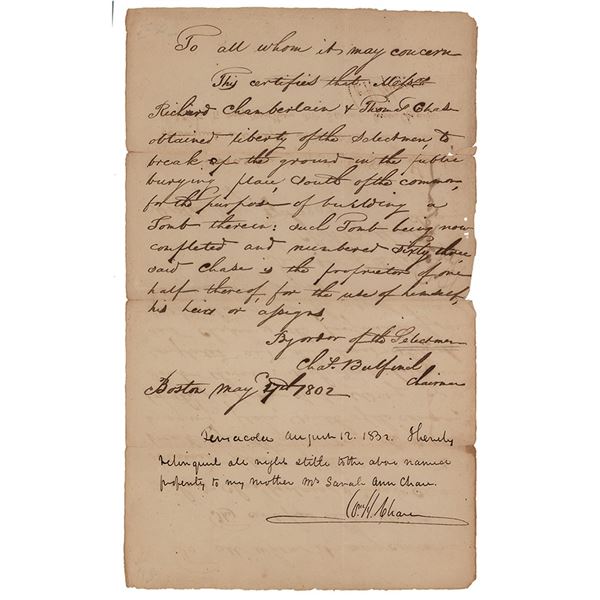 To all whom it may concern
This certifies that Messrs
Richard Chamberlain & Thomas Chase
obtained liberty of the selectmen, to
break up the ground in the public
burying place, South of the common,
for the purpose of building a
Tomb therein: such Tomb being now
completed and numbered sixty three,
said Chase is the proprietor of one
half thereof, for the use of himself,
his heirs or assigns,
By order of the Selectmen
Chas. Bulfinch
Chairman
Boston May 1802
Pensacola August 12. 1832. I hereby
relinquish all right & title to the above named
property to my mother Mrs Sarah Ann Chase.
Wm H. Chase